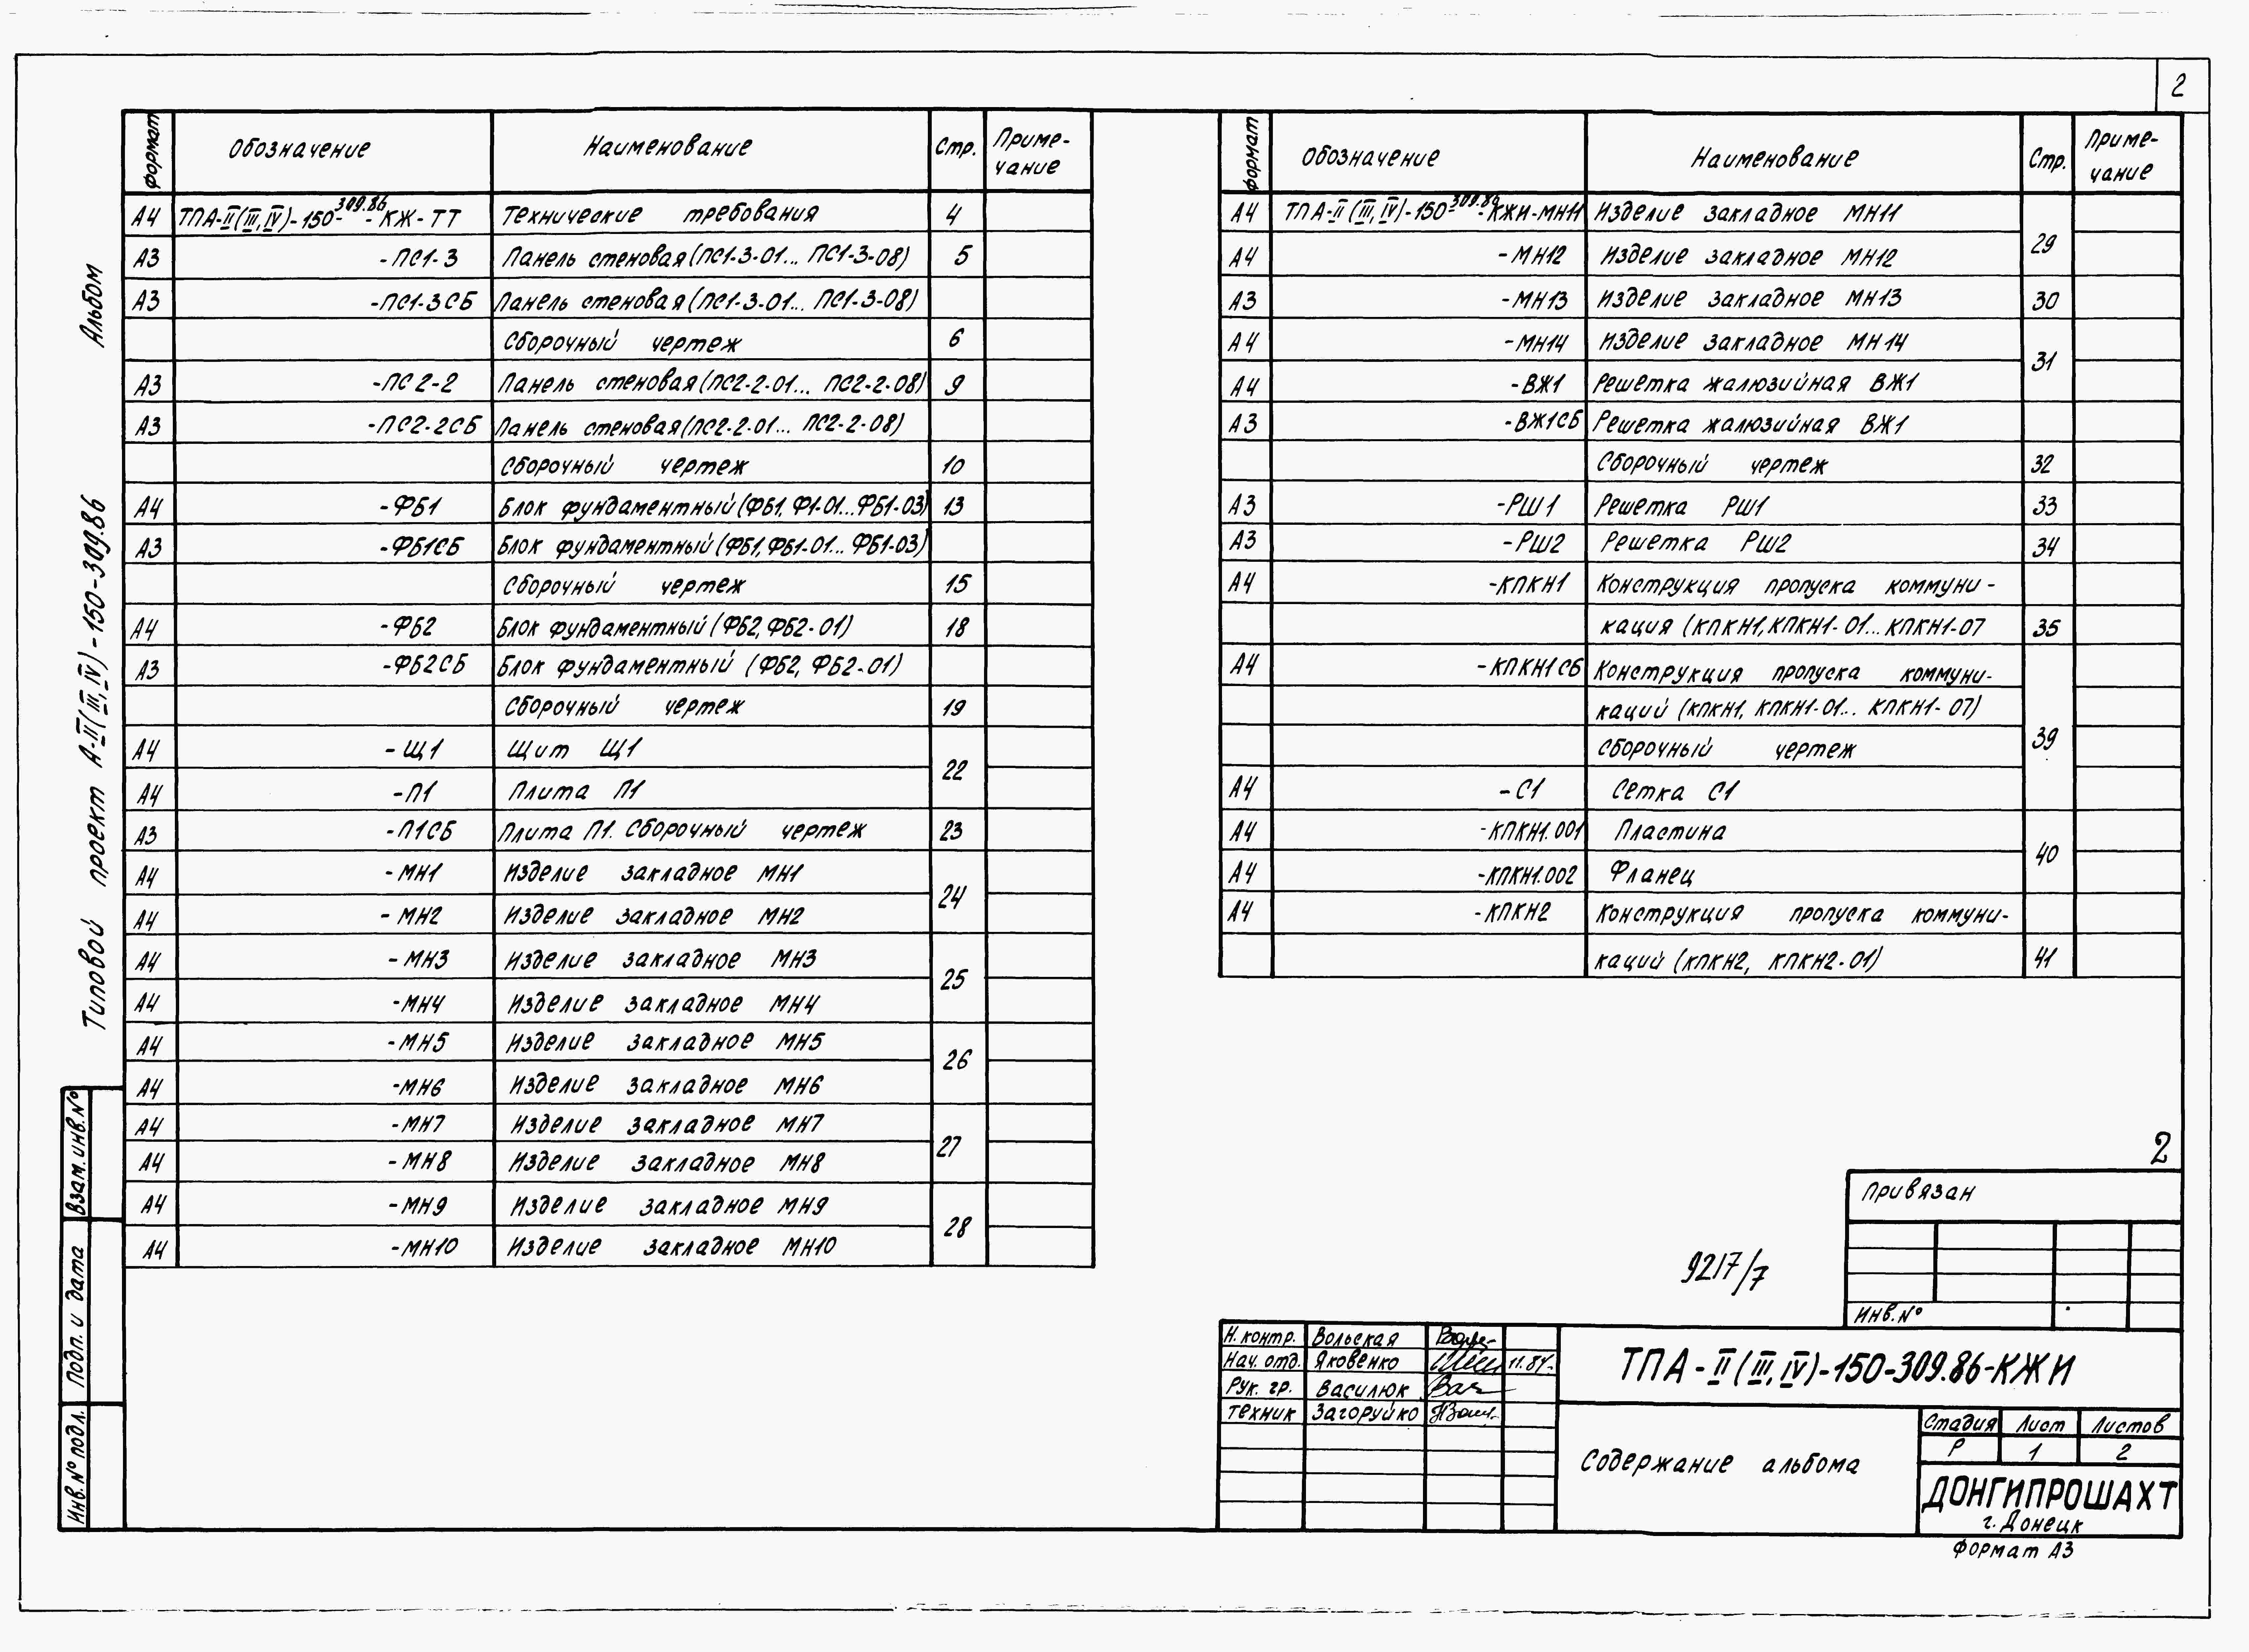 2
Альбом
Типовой проект А-II(III,IV)-150-309.86
Взам. инв.N°
Подп. и дата
Инв.N°подл.
Формат Обозначение Наименование Стр. Приме-
чание
А4 ТПА-II(III,IV)-150-309.86-КЖ-ТТ Технические требования 4
А3 -ПС1-3 Панель стеновая(ПС1-3-01... ПС1-3-08) 5
А3 -ПС1-3СБ Панель стеновая(ПС1-3-01... ПС1-3-08)
Сборочный чертеж 6
А3 -ПС2-2 Панель стеновая(ПС2-2-01... ПС2-2-08) 9
А3 -ПС2-2СБ Панель стеновая(ПС2-2-01... ПС2-2-08)
Сборочный чертеж 10
А4 -ФБ1 Блок фундаментный(ФБ1, Ф1-01...ФБ1-03) 13
А3 -ФБ1СБ Блок фундаментный(ФБ1,ФБ1-01... ФБ1-03)
Сборочный чертеж 15
А4 -ФБ2 Блок фундаментный(ФБ2,ФБ2-01) 18
А3 -ФБ2СБ Блок фундаментный (ФБ2, ФБ2-01)
Сборочный чертеж 19
А4 -Щ1 Щит Щ1
22
А4 -П1 Плита П1
А3 -П1СБ Плита П1. Сборочный чертеж 23
А4 -МН1 Изделие закладное МН1
24
А4 -МН2 Изделие закладное МН2
А4 -МН3 Изделие закладное МН3
25
А4 -МН4 Изделие закладное МН4
А4 -МН5 Изделие закладное МН5
26
А4 -МН6 Изделие закладное МН6
А4 -МН7 Изделие закладное МН7
27
А4 -МН8 Изделие закладное МН8
А4 -МН9 Изделие закладное МН9
28
А4 -МН10 Изделие закладное МН10
Формат Обозначение Наименование Стр. Приме-
чание
А4 ТПА-II(III,IV)-150-309.86-КЖИ-МН11 Изделие закладное МН11
29
А4 -МН12 Изделие закладное МН12
А3 -МН13 Изделие закладное МН13 30
А4 -МН14 Изделие закладное МН14
31
А4 -ВЖ1 Решетка жалюзийная ВЖ1
А3 -ВЖ1СБ Решетка жалюзийная ВЖ1
Сборочный чертеж 32
А3 -РШ1 Решетка РШ1 33
А3 -РШ2 Решетка РШ2 34
А4 -КПКН1 Конструкция пропуска коммуни-
кация (КПКН1,КПКН1-01...КПКН1-07 35
А4 -КПКН1СБ Конструкция пропуска коммуни-
каций (КПКН1, КПКН1-01... КПКН1-07)
Сборочный чертеж 39
А4 -С1 Сетка С1
А4 -КПКН1.001 Пластина
40
А4 -КПКН1.002 Фланец
А4 -КПКН2 Конструкция пропуска коммуни-
каций (КПКН2, КПКН2-01) 41
2
Привязан
Инв.N°
9217/7
Н. контр. Вольская
Нач. отд. Яковенко
Рук. гр. Василюк
Техник Загоруйко
ТПА-II(III,IV)-150-309.86-КЖИ
Содержание альбома
Стадия Лист Листов
Р 1 2
ДОНГИПРОШАХТ
г. Донецк
Формат А3